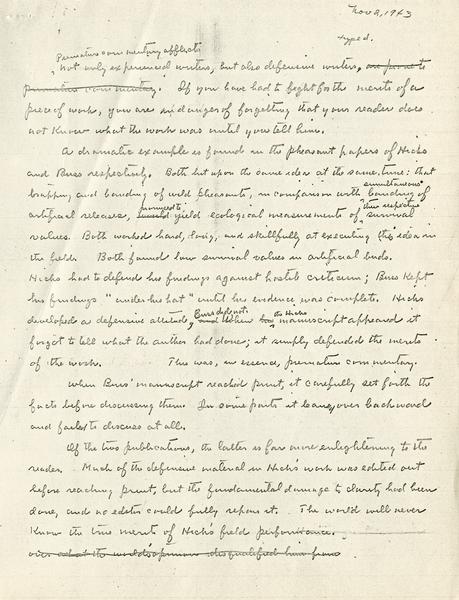 Nov 2, 1943
typed.
Premature commentary afflicts
not only experienced writers, but also defensive writers, are prone to
premature commentary. If you have had to fight for the merits of a
piece of work, you are in danger of forgetting that your reader does
not know what the work was until you tell him.
A dramatic example is found in the pheasant papers of Hicks
and Buss respectively. Both hit upon the same idea at the same time: that
trapping and banding of wild pheasants, in comparison with simultaneous banding of
artificial releases, promised to yield ecological measurements of their respective survival
values. Both worked hard, long, and skillfully at executing this idea in
the field. Both found low survival values in artificial birds.
Hicks had to defend his findings against hostile criticism; Buss kept
his findings "under his hat" until his evidence was complete. Hicks
developed a defensive attitude, Buss did not. and When the Hicks manuscript appeared it
forgot to tell what the author had done; it simply defended the merits
of the work. This was, in essence, premature commentary.
When Buss' manuscript reached print, it carefully set forth the
facts before discussing them. In some parts it leans over backward
and fails to discuss at all.
Of the two publications, the latter is far more enlightening to the
reader. Much of the defensive material in Hick's work was edited out
before reaching print, but the fundamental damage to clarity had been
done, and no editor could fully repair it. The world will never
know the true merits of Hick's field performance.
over what the world's opinion disqualified him from